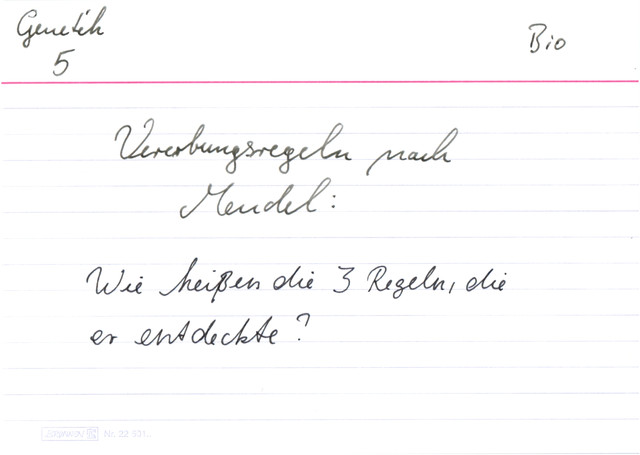 Genetik
5
Bio
Vererbungsregeln nach
Mendel:
Wie heißen die 3 Regeln, die
er entdeckte?
Nr. 22 531